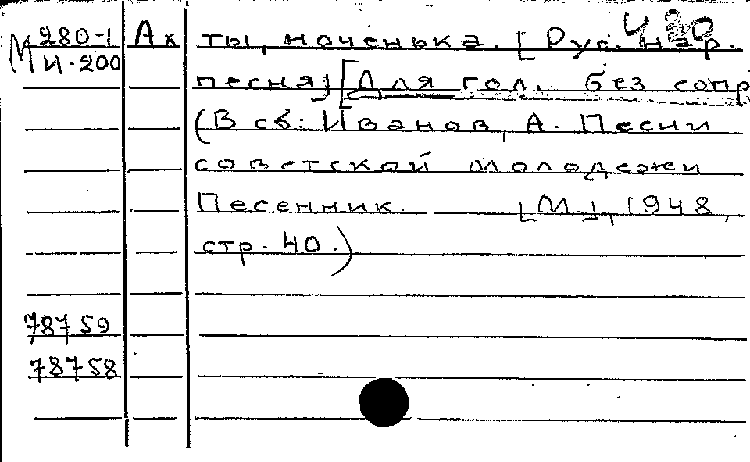 М 280-1 Ах ты, ноченька. [Рус. нар.
И-200 песня] [Для гол. без сопр
(В сб: Иванов, А. Песни
советской молодежи
Песенник. [М.], 1948,
стр. 40.)
78759
78758